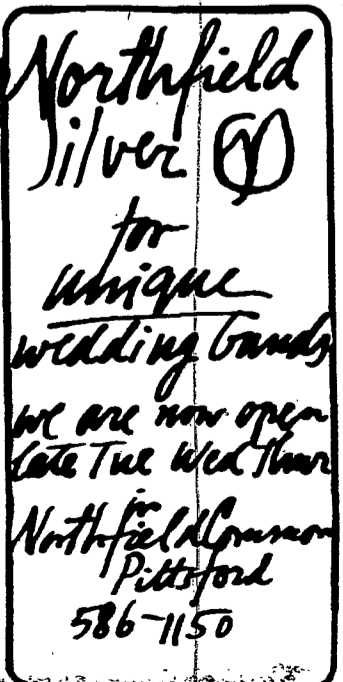 Northfield
Silver
for
unique
wedding bands
we are now open
late Tue Wed Thur
in
Northfield Common
Pittsford
586-1150